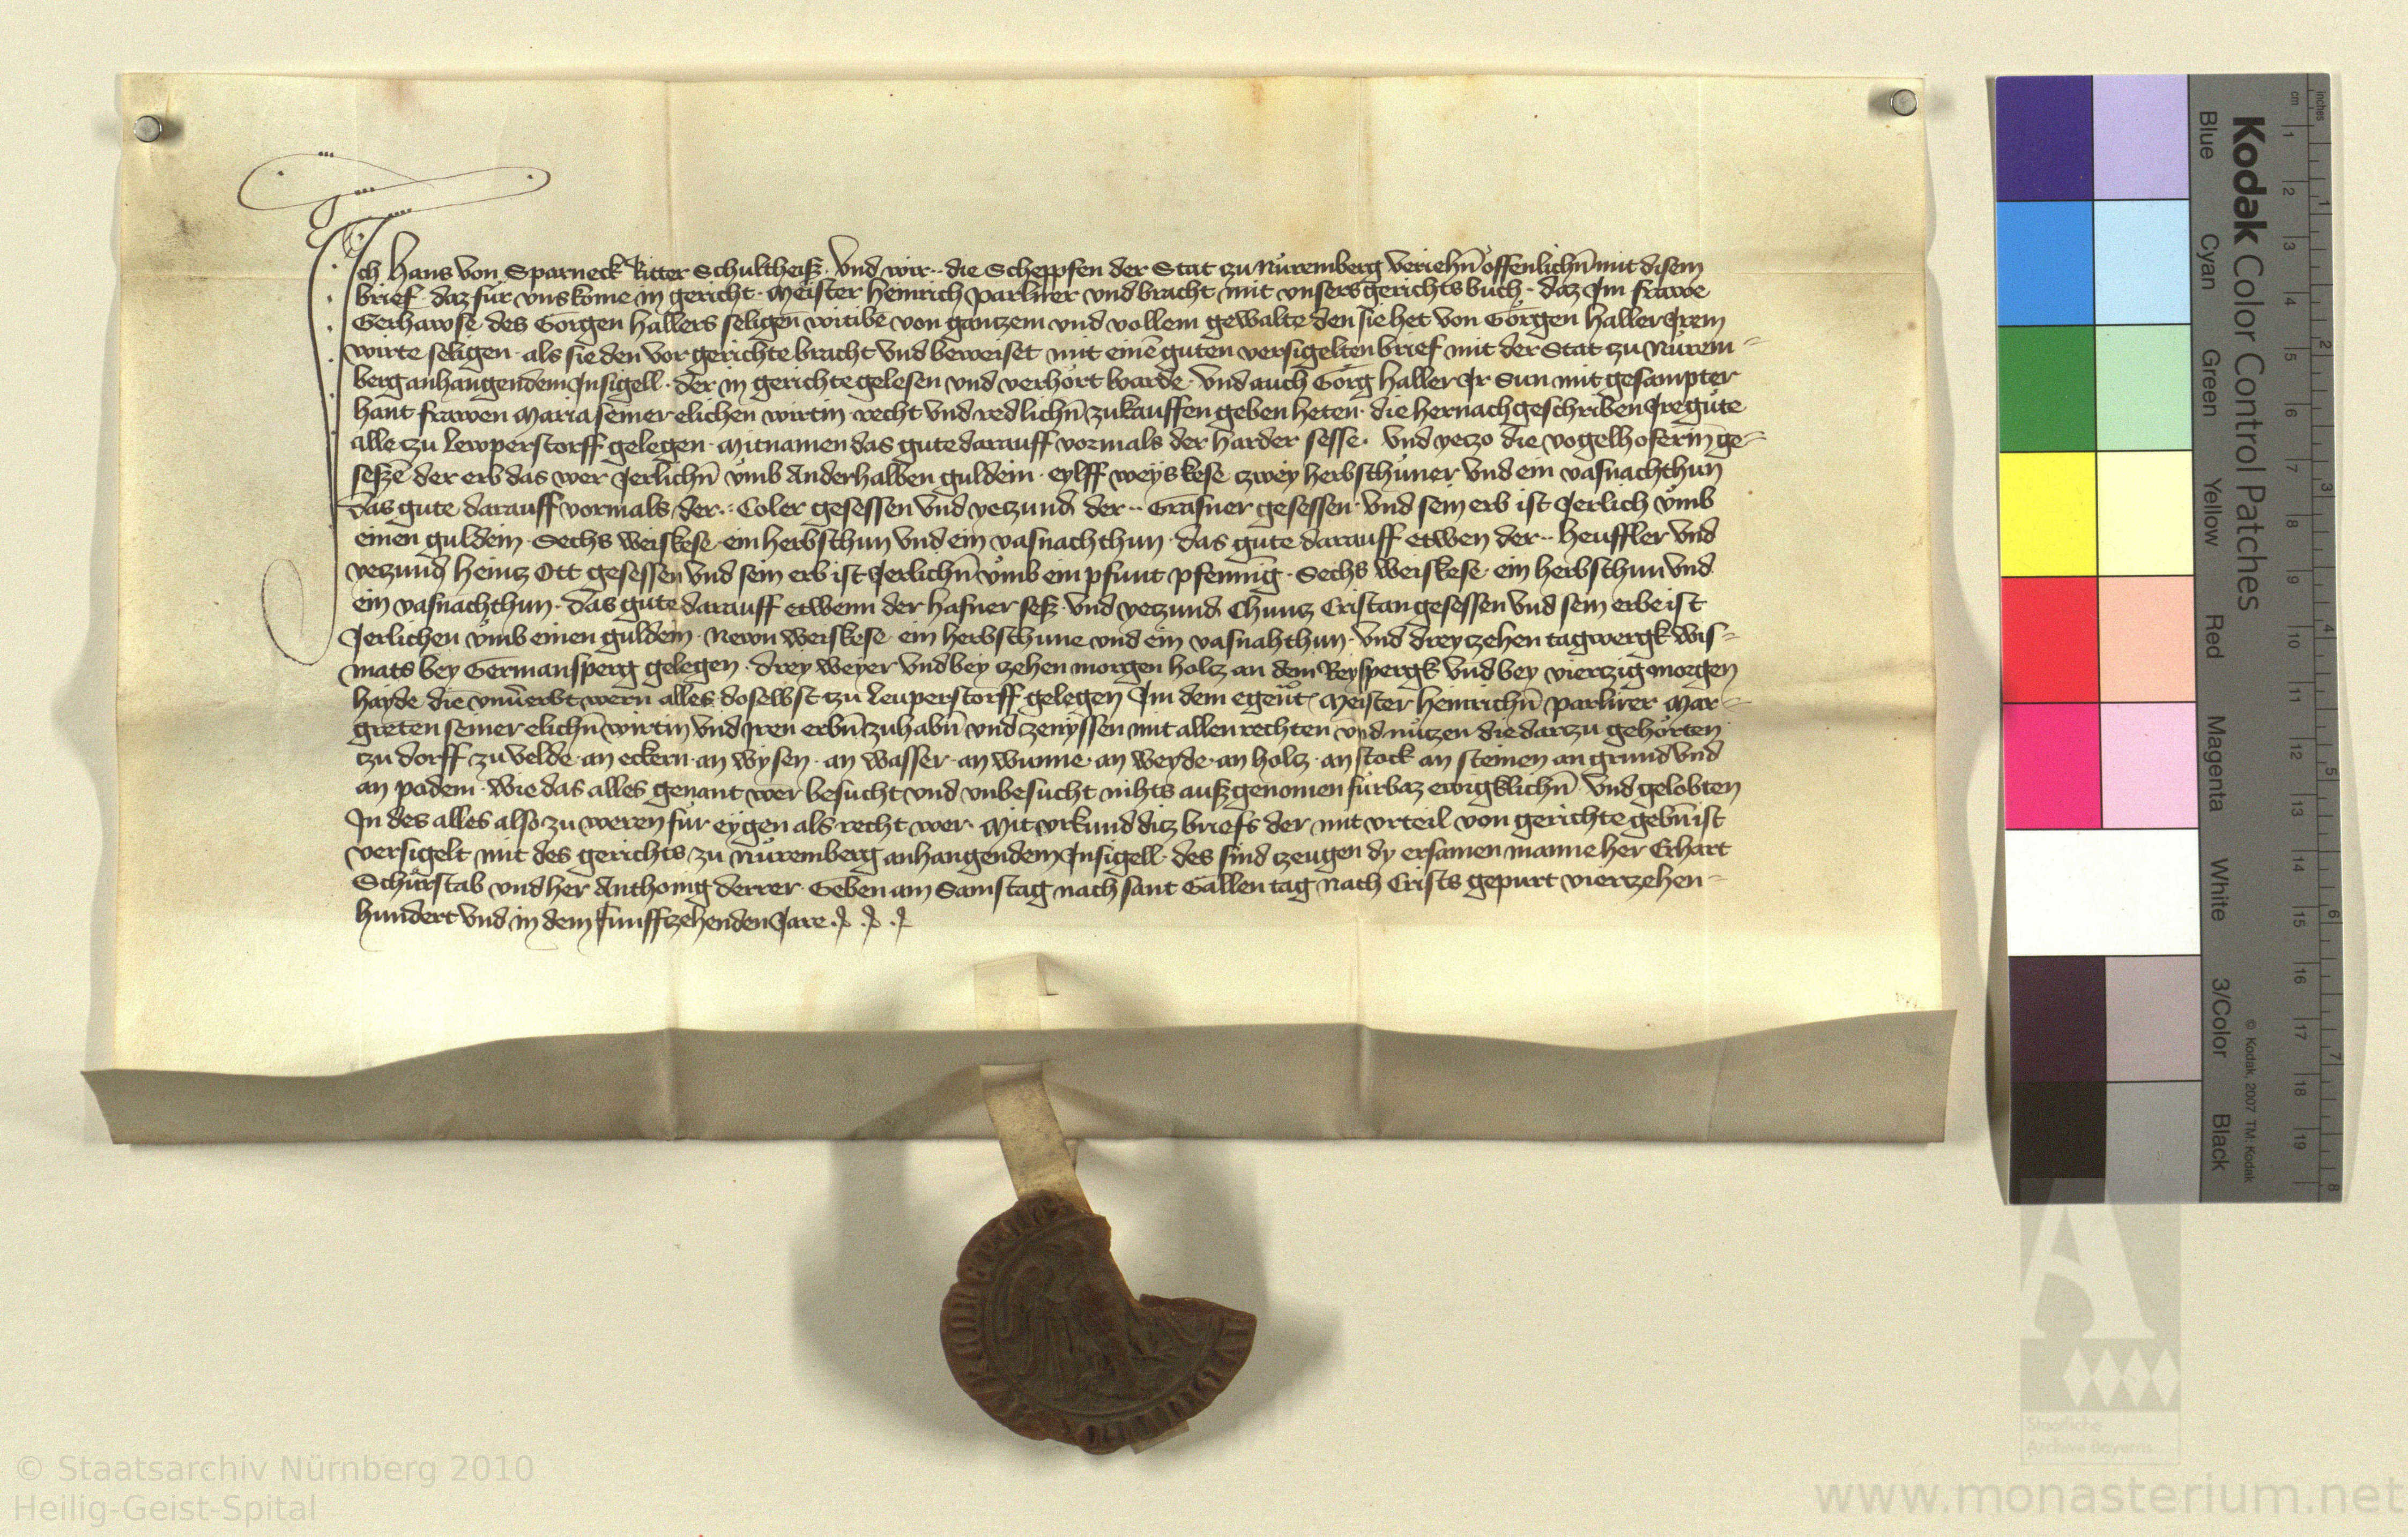 Ich Hans von Sparneck Ritter Schultheiß · Und wir ·· die Scheppfen der Stat zu Nůremberg veriehn̄ offenlichn̄ mit disem
brief · daz für uns kome in gericht · Meister Heinrich parlirer und bracht mit unsers gerichts buch · daz Im frawe
Gerhawse des Görgen Hallers seligen witibe von gantzem und vollem gewalte den sie het von Görgen Haller Irem
wirte seligen · als sie den vor gerichte bracht und beweiset mit einē guten versigelten brief mit der Stat zu Nůrem-
berg anhangendem Insigell · der in gerichte gelesen und verhört warde · Und auch Görg Haller Ir Sun mit gesampter
hant frawen Maria seiner elichen wirtin · recht und redlichn̄ zu kauffen geben heten · die hernach geschriben Ire gůte
alle tzu Lewperstorff gelegen · Mitnamen das gute darauff vormals der Harder sesse · Und yeczo die vogelhoferin ge-
seßē der erb das wer Jerlichn̄ ůmb Anderhalben guldein · eylff weyskese czwey herbschůner und ein vasnachthun
das gute darauff vormals der ·· Coler gesessen und yeczund der ·· Grasner gesessen · Und sein erb ist Jerlich ůmb
einen guldein · Sechs weiskese · ein herbschun und ein vasnachthun · das gute darauff etwen der ·· Heuffler und
yeczund Heincz Ott gesessen und sein erb ist Jerlichn̄ ůmb ein pfunt pfennīg · Sechs weiskese · ein herbschun und
ein vasnachthun · das gute darauff etwenn der Hafner seß · und yeczund Chuncz Cristan gesessen und sein erbe ist
Jerlichen ůmb einen guldein · Newn weiskese · ein herbschune und ein vasnahthun · Und dreyczehen tagwergk wis-
mats bey Germansperg gelegen · drey weyer und bey czehen morgen holcz an dem Reyspergk und bey vierczig morgen
hayde die unv̄erbt wern alles doselbst zu Leuperstorff gelegen Im dem egenn̄t Meister Heinrichn̄ parlirer Mar-
greten seiner elichn̄ wirtin und Iren erbn̄ zuhabn̄ und zenyssen mit allen rechten und nützen die darzu gehörten
czu dorff zu velde · an eckern · an wysen · an wasser · an wunne · an weyde · an holcz · an stock an steinen an grund und
an podem · Wie das alles genant wer besucht und unbesucht nihts außgenomen fürbaz ewigklichn̄ Und gelobten
In des alles also zu weren für eygen als recht wer · Mit urkund ditz briefs der mit urteil von gerichte gebn̄ ist
versigelt mit des gerichts zu Nůremberg anhangendem Insigell · des sind czeugen dy ersamen manne her Erhart
Schürstab und her Anthonig derrer · Geben am Samstag nach sant Gallen tag Nach Crists gepurt vierczehen-
hundert und in dem funffzehenden Jare ·
Kodak Color Control Patches
Blue Cyan Green Yellow Red Magenta White 3/Color Black
© Kodak, 2007 TM: Kodak
inches 1 2 3 4 5 6 7 8
cm 1 2 3 4 5 6 7 8 9 10 11 12 13 14 15 16 17 18 19
Staatliche
Archive Bayerns
© Staatsarchiv Nürnberg 2010
Heilig-Geist-Spital
www.monasterium.net